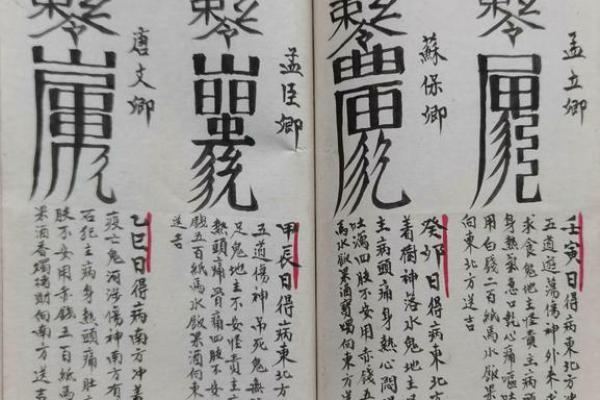 孟立卿
壬寅日得病東北方冲
五道遊蕩傷神外來
求食鬼地主怪責主病頭
身熱氣急口乱心痛嘔吐
用白錢二百紙馬水飯果
向東北方送吉
蘇保卿
癸卯日得病東北方
着樹神落水鬼地
主病頭痛身熱心悶
吐瀉四肢不安用赤錢五
馬水飯果酒香燭向東方送
孟臣卿
甲辰日得病東北方
五道傷神吊死鬼無
足鬼地主不安怪責主
熱頭痛骨痛四肢不安
錢五百紙馬水飯果酒向東
送吉
唐文卿
乙巳日得病南方冲著
疫亡鬼河泊傷神南方有
石犯主病身熱頭痛肚
肢不安用赤錢五百紙馬
果酒香燭財向南方送吉